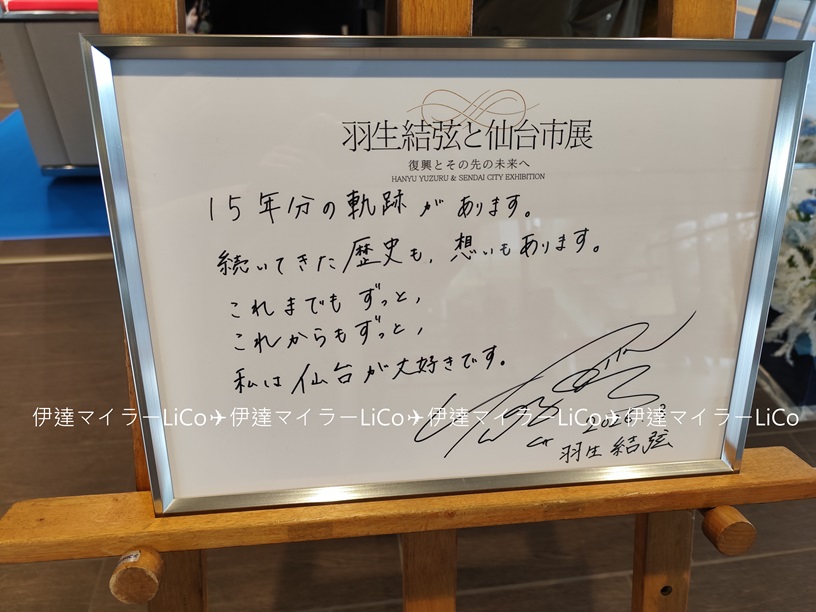 羽生結弦と仙台市展
復興とその先の未来へ
HANYU YUZURU & SENDAI CITY EXHIBITION
15年分の軌跡があります。
続いてきた歴史も、想いもあります。
これまでもずっと、
これからもずっと、
私は仙台が大好きです。
伊達マイラーLiCo✈伊達マイラーLiCo✈伊達マイラーLiCo✈伊達マイラーLiCo
羽生結弦